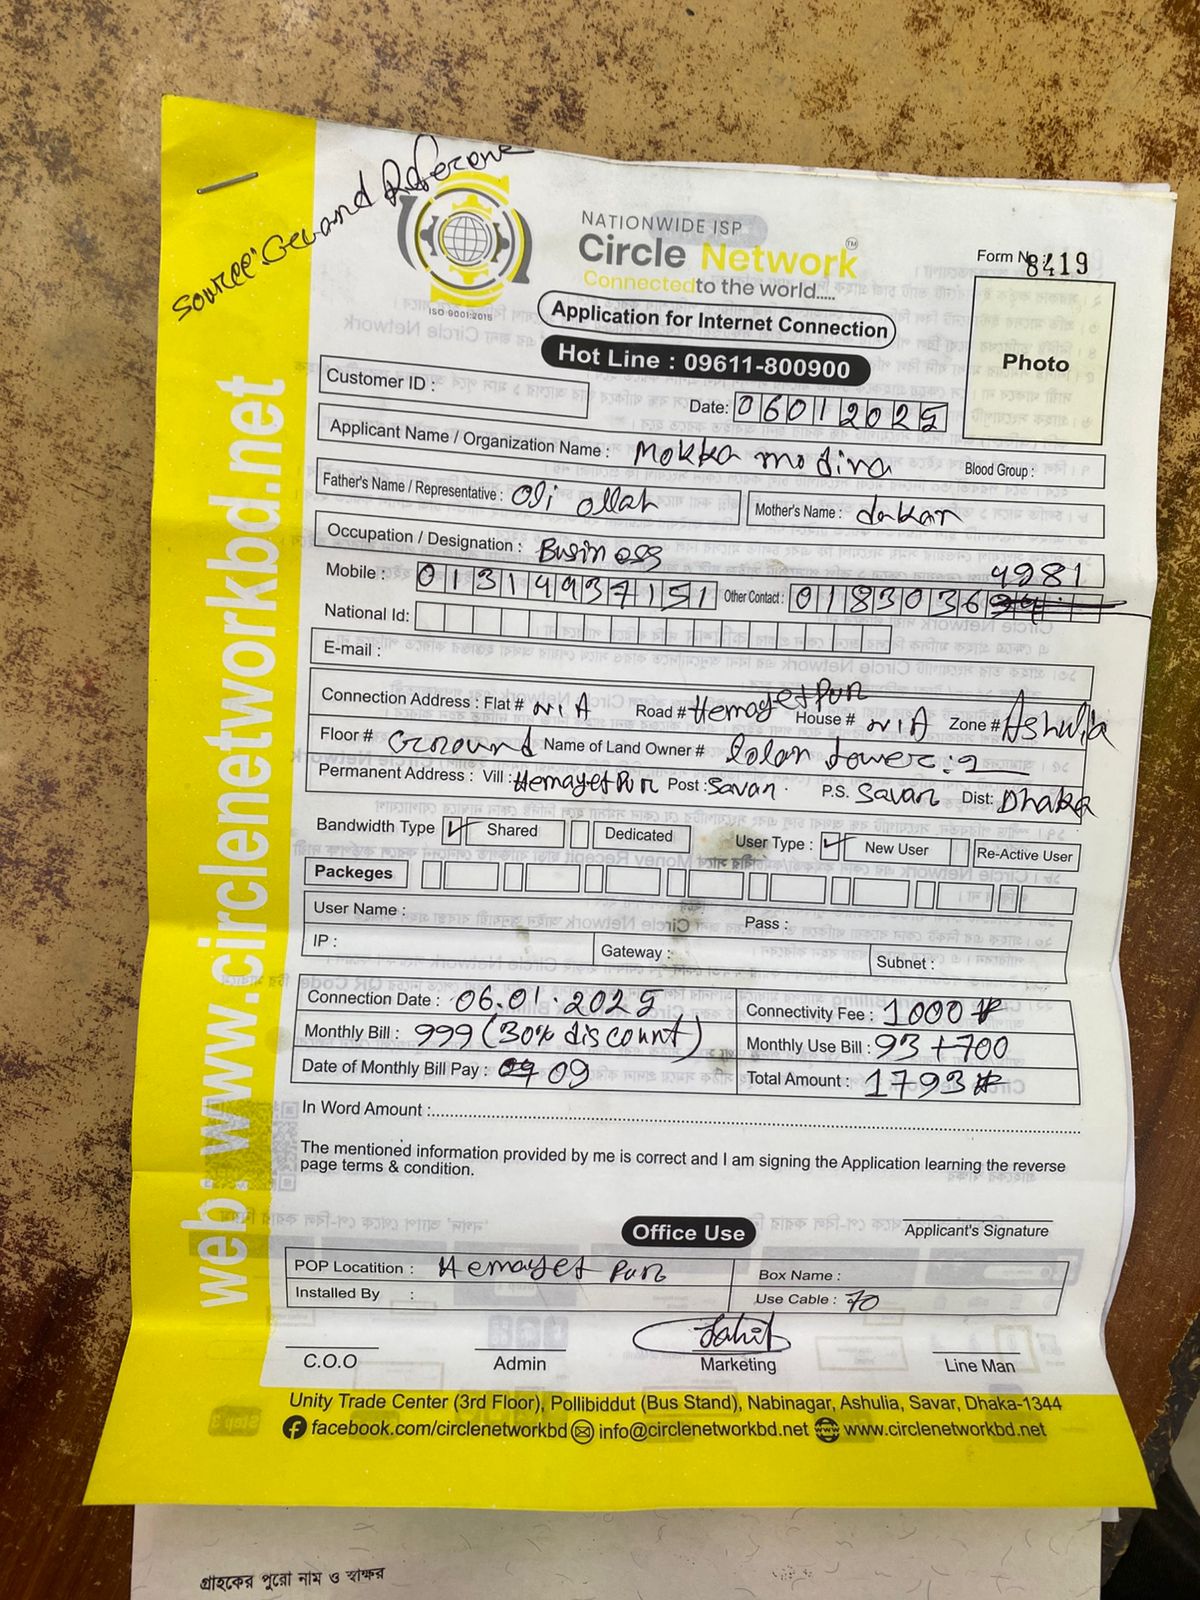 Source: Grand Reference
NATIONWIDE ISP
Circle Network™
Connected to the world.....
ISO 9001:2015
Form No 8419
Application for Internet Connection
Hot Line : 09611-800900
Photo
Customer ID :
Date: 06012025
Applicant Name / Organization Name : Mokka modina Blood Group :
Father's Name / Representative : Oli ollah Mother's Name :
Occupation / Designation : Business
Mobile : 01314937151 Other Contact : 0183036 4281
National Id:
E-mail :
Connection Address : Flat # N/A Road # Hemayetpur House # N/A Zone # Ashulia
Floor # Ground Name of Land Owner # tower : 2
Permanent Address : Vill : Hemayetpur Post : Savar. P.S. Savar Dist: Dhaka
Bandwidth Type ✓ Shared Dedicated User Type : ✓ New User Re-Active User
Packeges
User Name : Pass :
IP : Gateway : Subnet :
Connection Date : 06.01.2025 Connectivity Fee : 1000
Monthly Bill : 999 (30% discount) Monthly Use Bill : 93 +700
Date of Monthly Bill Pay : 09 Total Amount : 1793
In Word Amount :
The mentioned information provided by me is correct and I am signing the Application learning the reverse
page terms & condition.
Applicant's Signature
Office Use
POP Locatition : Hemayet pur Box Name :
Installed By : Use Cable : 70
C.O.O Admin Marketing Line Man
Unity Trade Center (3rd Floor), Pollibiddut (Bus Stand), Nabinagar, Ashulia, Savar, Dhaka-1344
facebook.com/circlenetworkbd info@circlenetworkbd.net www.circlenetworkbd.net
web: www.circlenetworkbd.net
গ্রাহকের পুরো নাম ও স্বাক্ষর